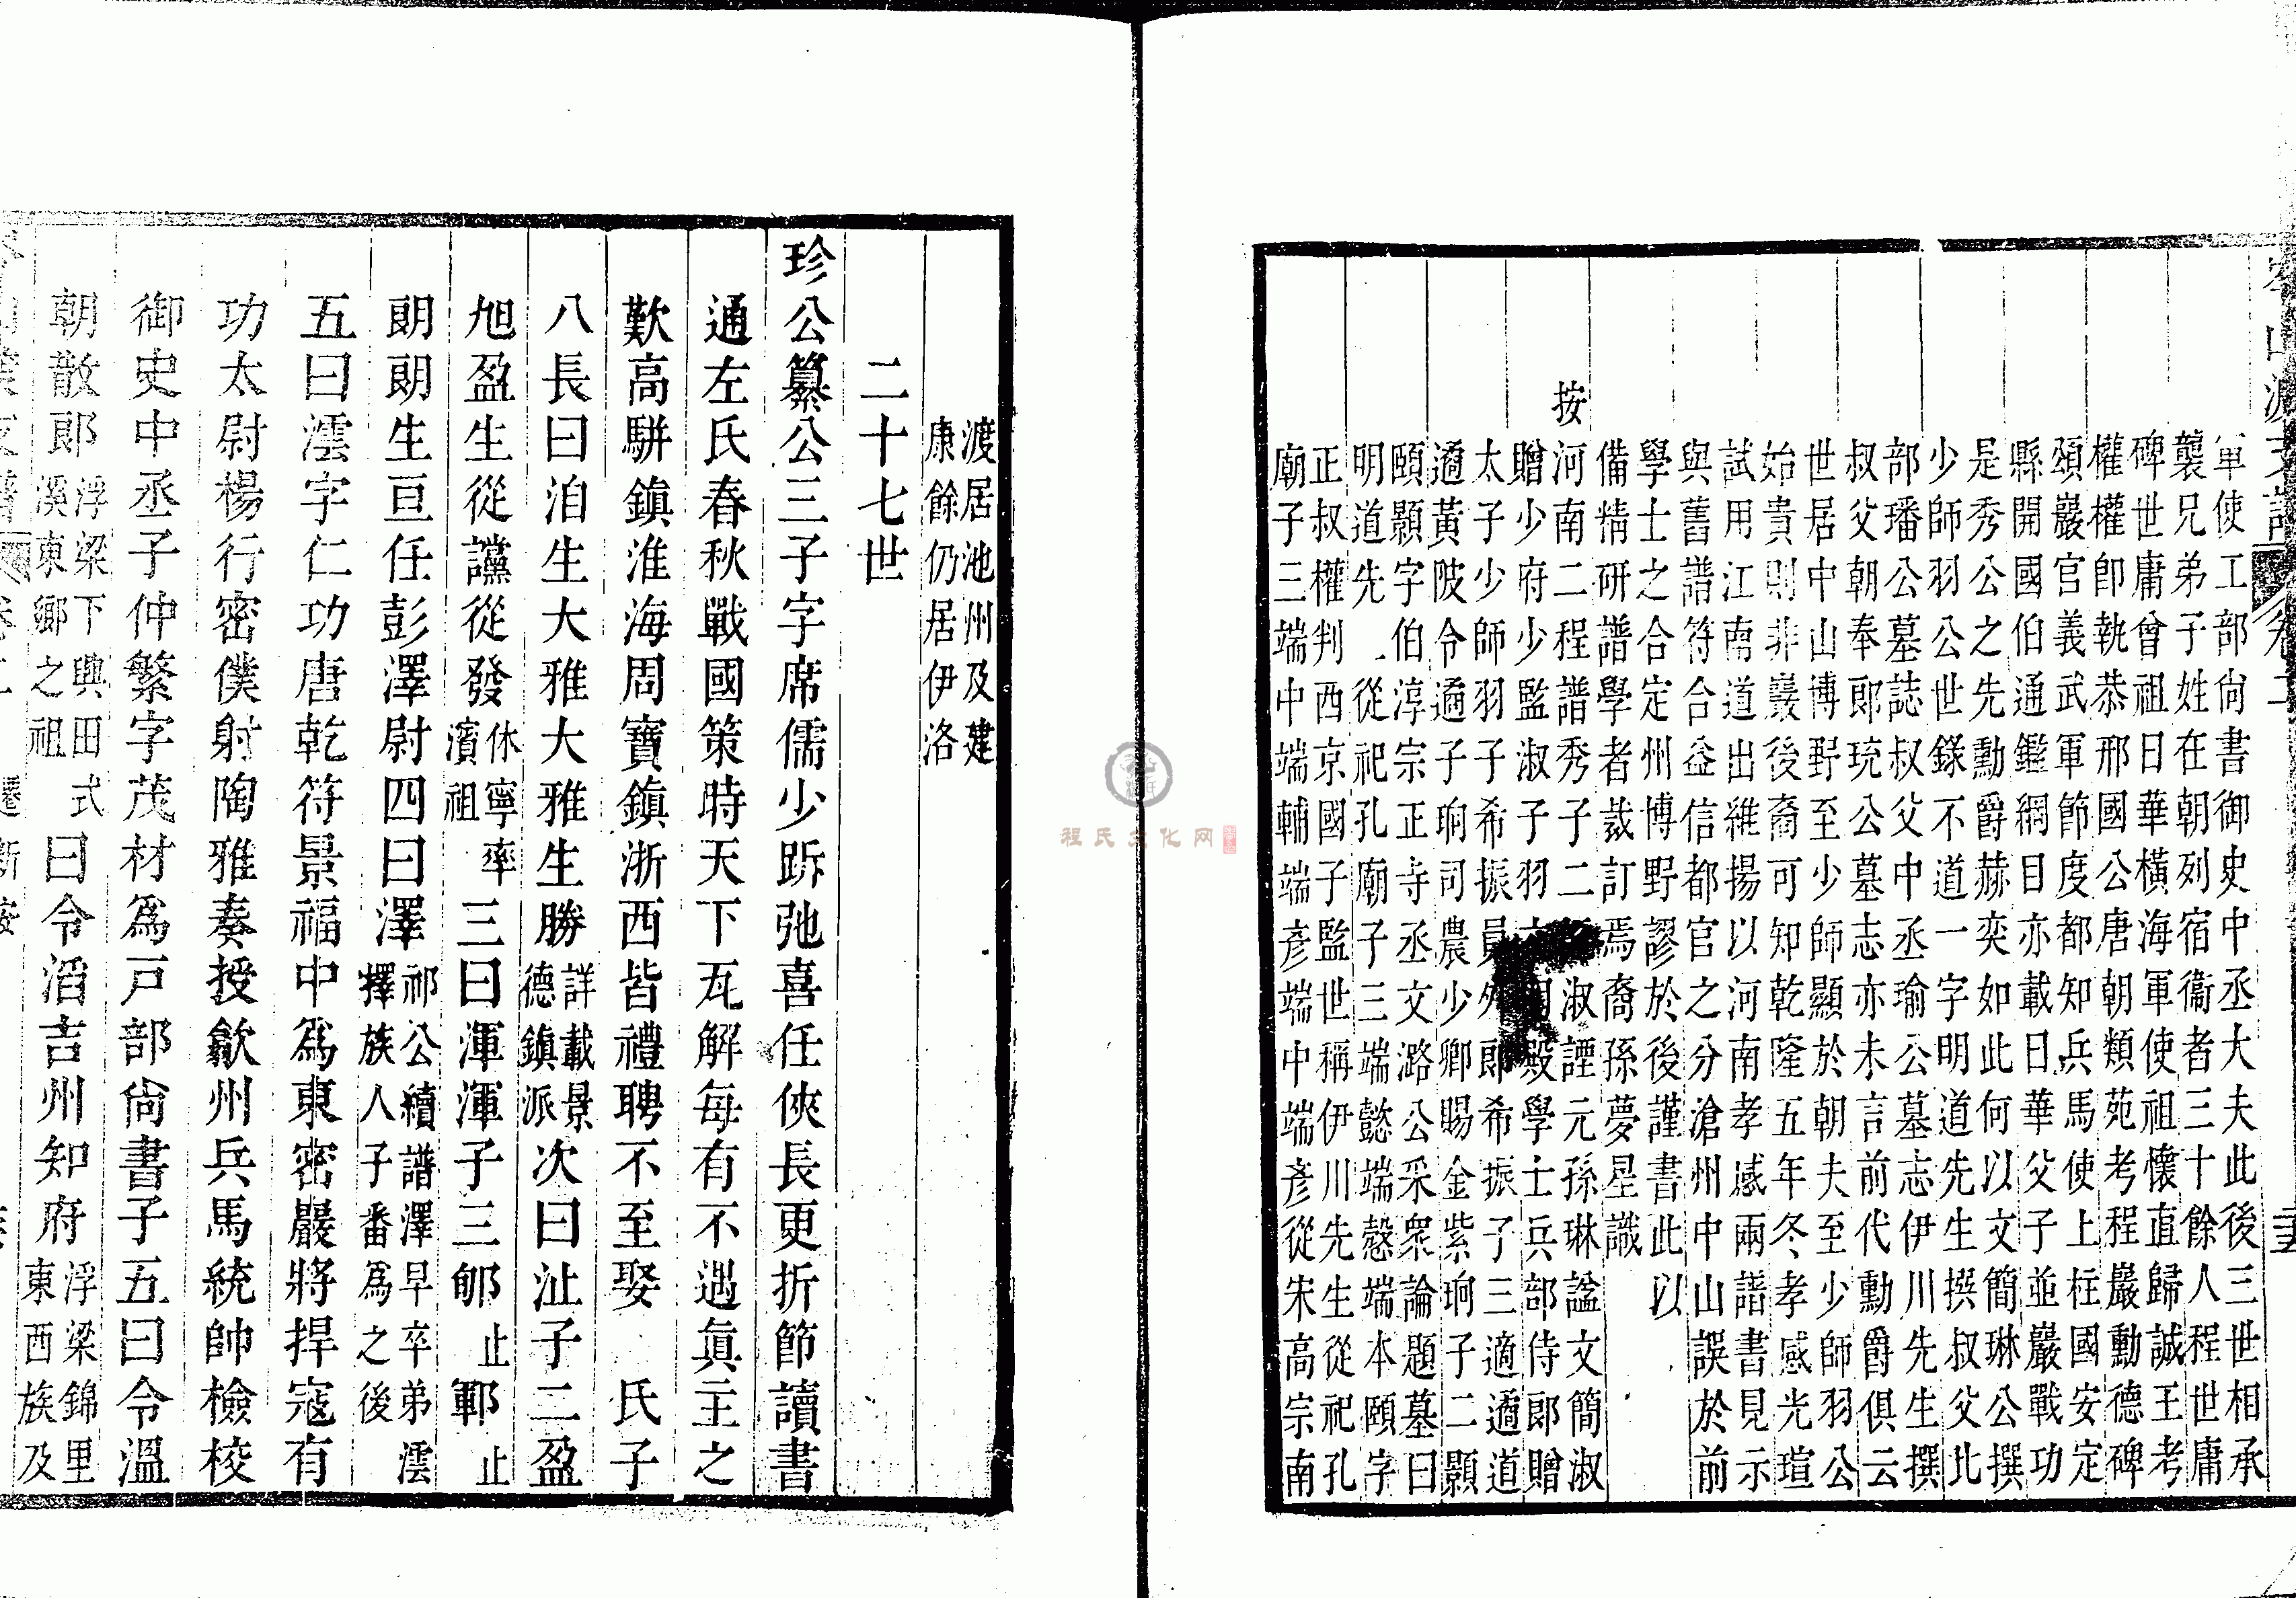 軍使工部尙書御史中丞大夫此後三世相承
襲兄弟子姓在朝列宿衞者三十餘人程世庸
碑世庸曾祖日華橫海軍使祖懷直歸誠王考
權權卽執恭邢國公唐朝類苑考程巖勳德碑
頌巖官義武軍節度都知兵馬使上柱國安定
縣開國伯通鑑綱目亦載日華父子並巖戰功
是秀公之先勳爵赫奕如此何以文簡琳公撰
少師羽公世錄不道一字明道先生撰叔父北
部璠公墓誌叔父中丞瑜公墓志伊川先生撰
叔父朝奉郎珫公墓志亦未言前代勳爵俱云
世居中山博野至少師顯於朝夫至少師羽公
始貴則非巖後裔可知乾隆五年冬孝感光瑄
試用江南道出維揚以河南孝感兩譜書見示
與舊譜符合益信都官之分滄州中山誤於前
學士之合定州博野謬於後謹書此以
備精研譜學者裁訂焉裔孫夢星識
按河南二程譜秀子二淑諲元孫琳諡文簡淑
贈少府少監淑子羽殿學士兵部侍郎贈
太子少師羽子希振員外郎希振子三適遹道
遹黃陂令遹子珦司農少卿賜金紫珦子二顥
頤顥字伯淳宗正寺丞文潞公采衆論題墓曰
明道先從祀孔廟子三端懿端慤端本頤字
正叔權判西京國子監世稱伊川先生從祀孔
廟子三端中端輔端彥端中端彥從宋高宗南
渡居池州及建
康餘仍居伊洛
二十七世
珍公纂公三子字席儒少跅弛喜任俠長更折節讀書
通左氏春秋戰國策時天下瓦解每有不遇眞主之
歎高駢鎮淮海周寶鎮浙西皆禮聘不至娶　氏子
八長曰洎生大雅大雅生勝詳載景德鎮派次曰沚子二盈
旭盈生從讜從發休寧率濱祖三曰渾渾子三郇止鄆止
朗朗生亘任彭澤尉四曰澤祁公續譜澤早卒弟澐擇族人子番爲之後
五曰澐字仁功唐乾符景福中爲東密巖將捍寇有
功太尉楊行密僕射陶雅奏授歙州兵馬統帥檢校
御史中丞子仲繁字茂材爲戶部尙書子五曰令溫
朝散郎浮梁下興田式溪東鄉之祖曰令滔吉州知府浮梁錦里東西族及
程氏文化网